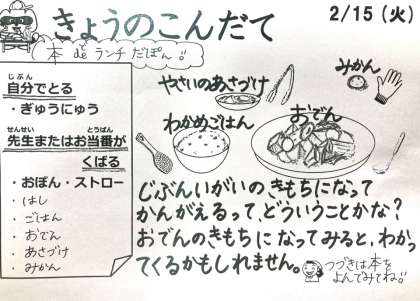 きょうのこんだて
2/15（火）
本 de ランチ だポン!!
じぶん
自分でとる
・ぎゅうにゅう
せんせい とうばん
先生またはお当番が
くばる
・おぼん・ストロー
・はし
・ごはん
・おでん
・あさづけ
・みかん
やさいのあさづけ
みかん
わかめごはん
おでん
じぶんいがいの きもちになって
かんがえるって、どういうことかな？
おでんのきもちに なってみると、わかっ
てくるかもしれません。
つづきは本を
よんでみてね!!